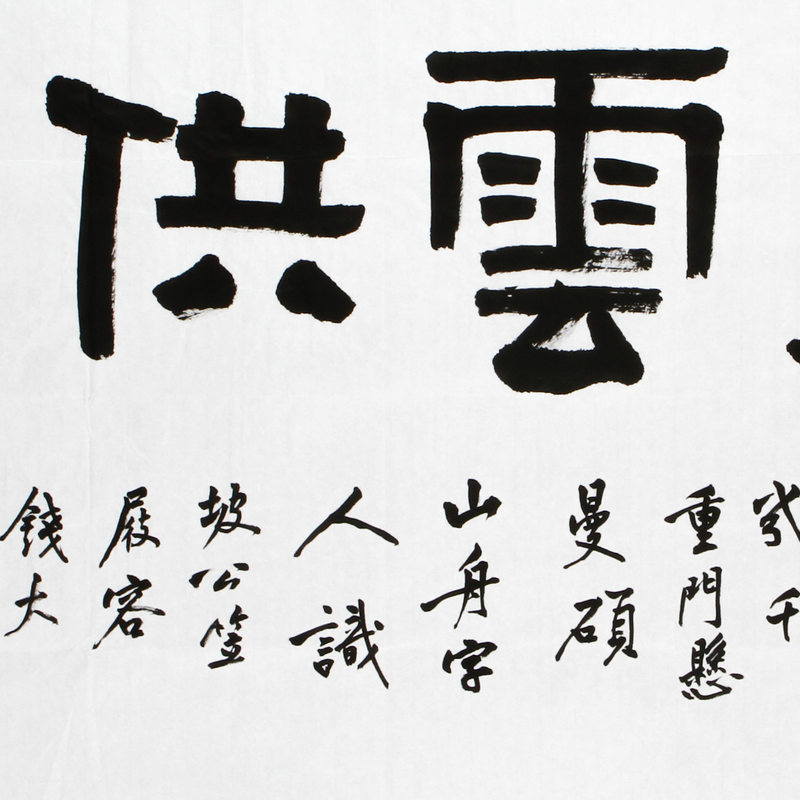 雲供
重門懸
曼碩
山舟字
人識
坡公笠
屐容
錢大